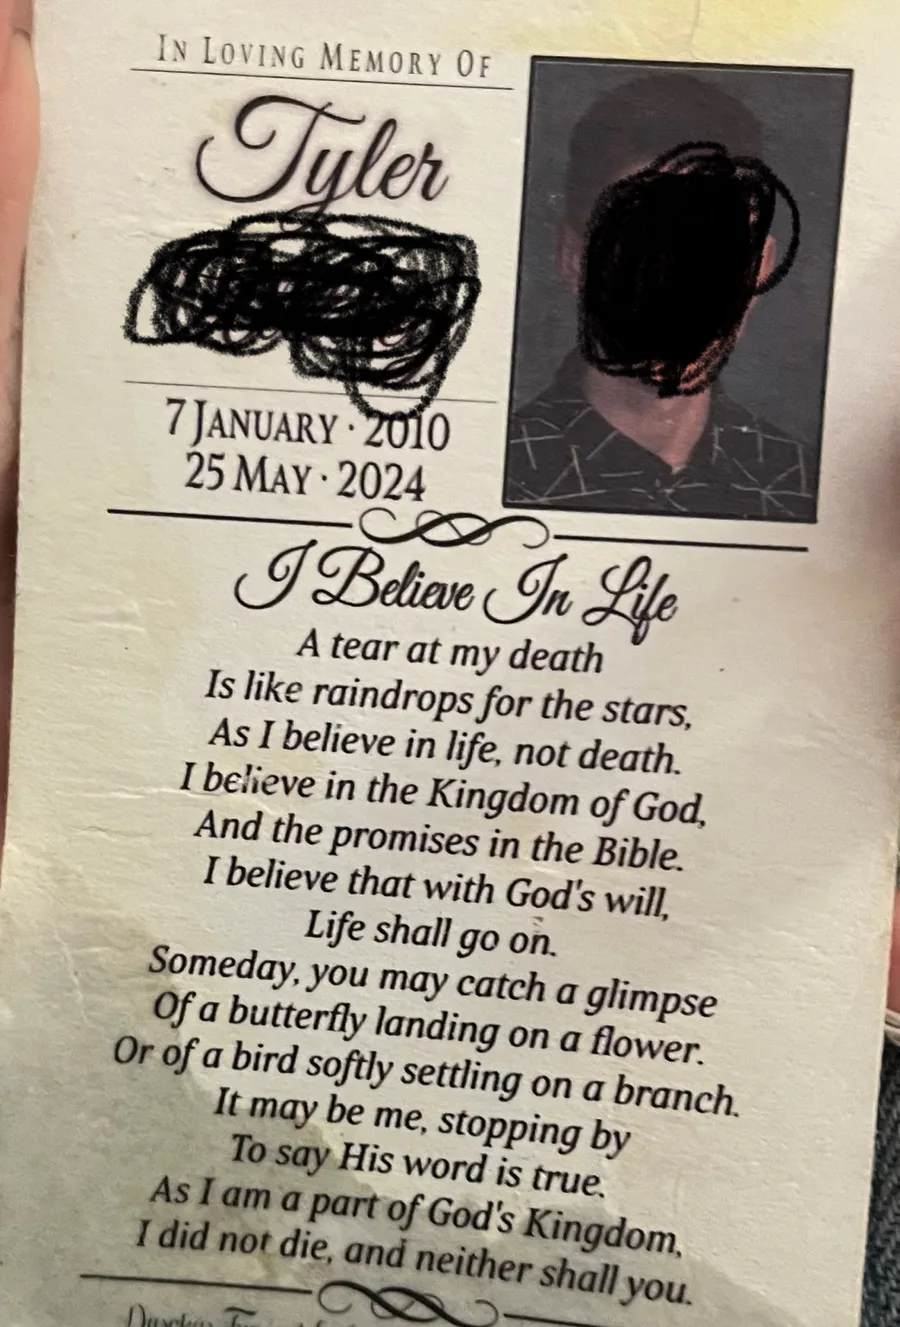 IN LOVING MEMORY OF
Tyler
7 JANUARY · 2010
25 MAY · 2024
I Believe In Life
A tear at my death
Is like raindrops for the stars,
As I believe in life, not death.
I believe in the Kingdom of God,
And the promises in the Bible.
I believe that with God's will,
Life shall go on.
Someday, you may catch a glimpse
Of a butterfly landing on a flower.
Or of a bird softly settling on a branch.
It may be me, stopping by
To say His word is true.
As I am a part of God's Kingdom,
I did not die, and neither shall you.